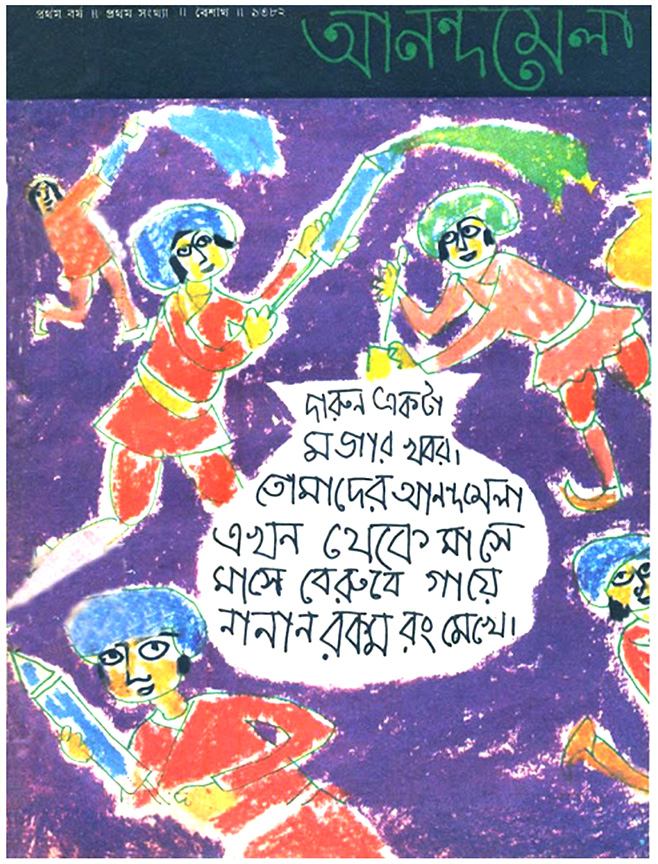 প্রথম বর্ষ ॥ প্রথম সংখ্যা ॥ বৈশাখ ॥ ১৩৮২
আনন্দমেলা
দারুন একটা
মজার খবর।
তোমাদের আনন্দমেলা
এখন থেকে মাসে
মাসে বেরুবে গায়ে
নানান রকম রং মেখে।